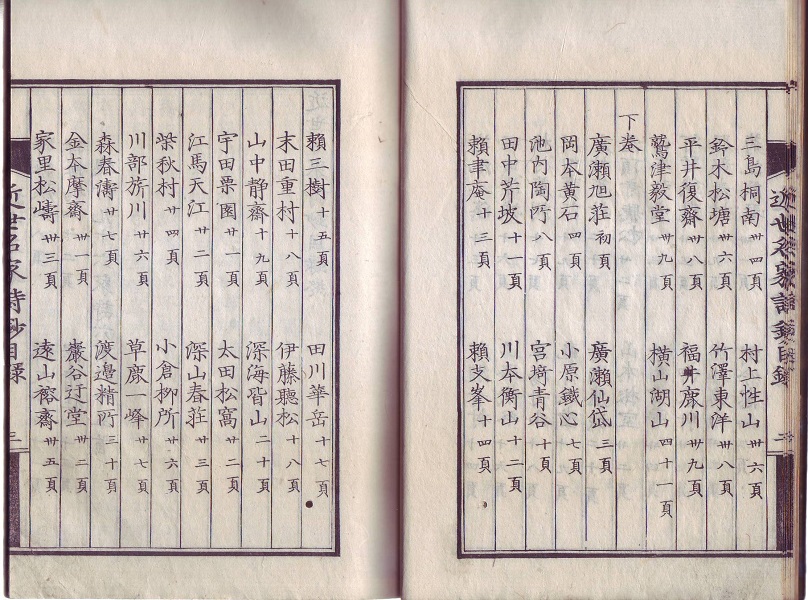 近世名家詩鈔目録 二
三島桐南 卅四頁 村上性山 卅六頁
鈴木松塘 卅六頁 竹澤東洋 卅八頁
平井復齋 卅八頁 福井鹿川 卅九頁
鷲津毅堂 卅九頁 横山湖山 四十一頁
下巻
廣瀬旭荘 初頁 廣瀬仙岱 三頁
岡本黄石 四頁 小原鐵心 七頁
池内陶所 八頁 宮埼青谷 十頁
田中芹坡 十一頁 川本衡山 十二頁
賴聿庵 十三頁 賴支峯 十四頁
賴三樹 十五頁 田川華岳 十七頁
末田重村 十八頁 伊藤聽松 十八頁
山中静齋 十九頁 深海香山 二十頁
宇田栗園 廿一頁 太田松窩 廿二頁
江馬天江 廿二頁 深山春荘 廿三頁
柴秋村 廿四頁 小倉柳所 廿六頁
川部旂川 廿六頁 草鹿一峰 廿七頁
森春濤 廿七頁 渡邉精所 三十頁
金本摩齋 卅一頁 巖谷迂堂 卅二頁
家里松嶹 卅三頁 遠山榕齋 卅五頁
近世名家詩鈔目録 三